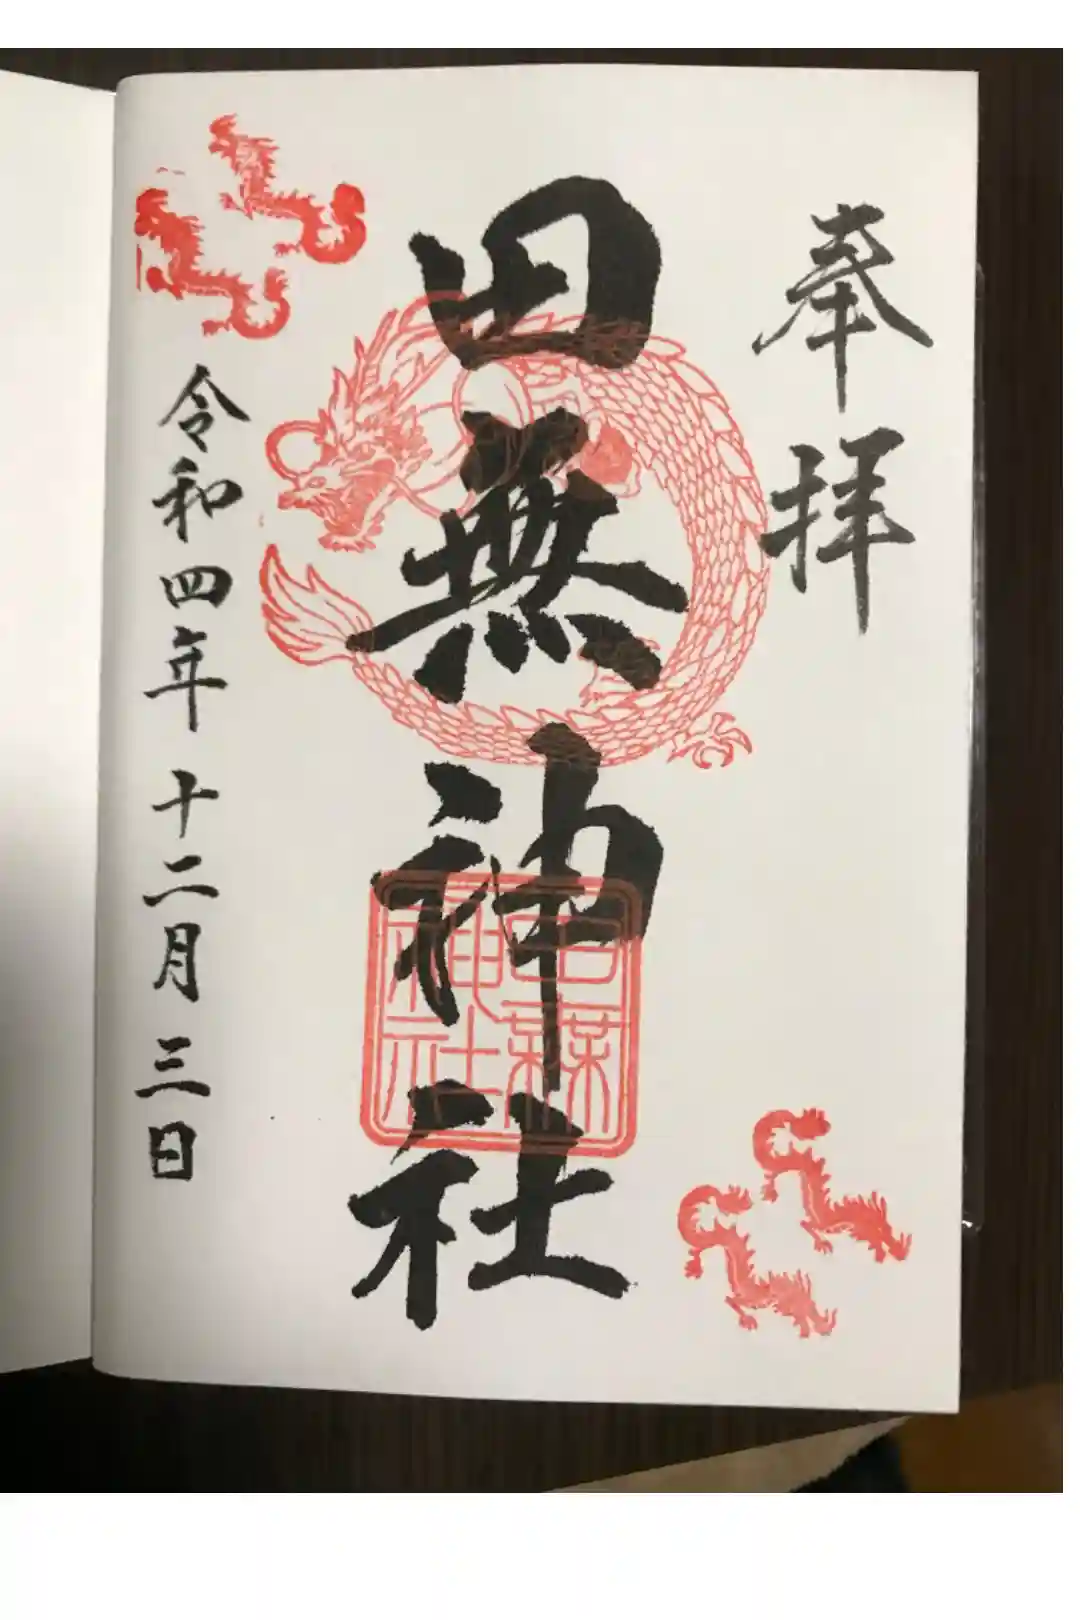 奉拝
田無神社
田無神社
令和四年十二月三日